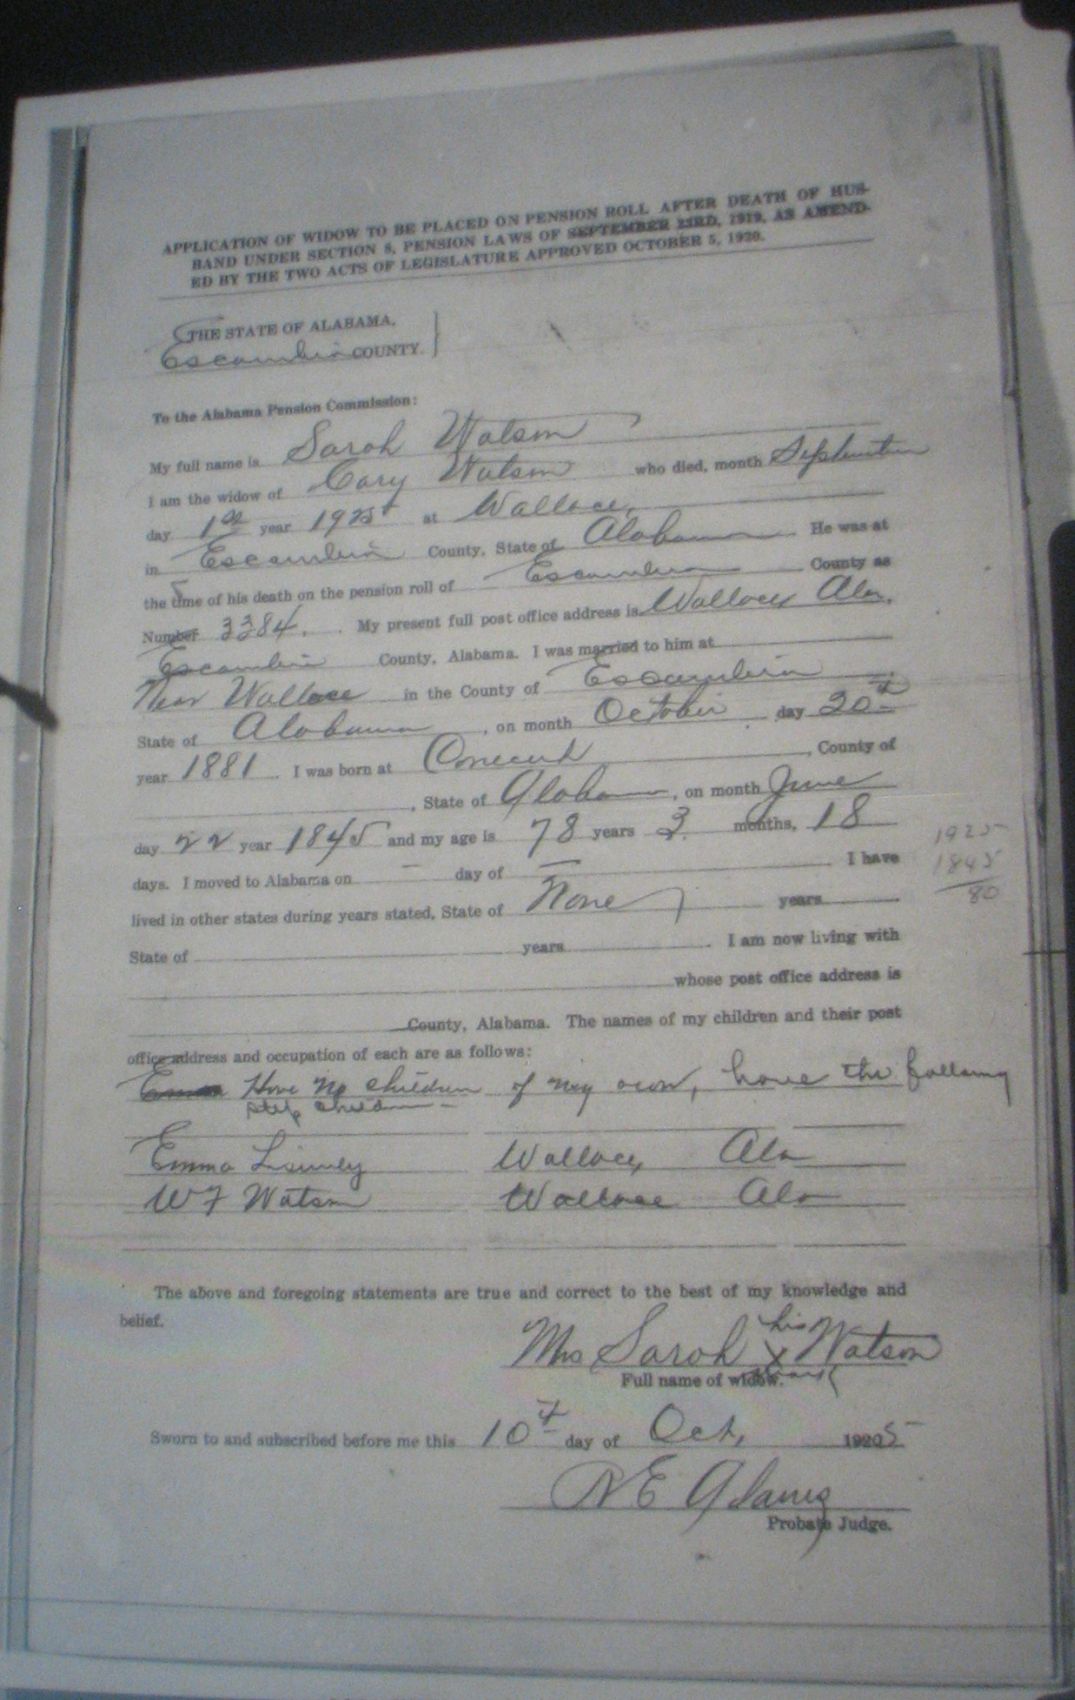 APPLICATION OF WIDOW TO BE PLACED ON PENSION ROLL AFTER DEATH OF HUS-
BAND UNDER SECTION 8, PENSION LAWS OF SEPTEMBER 23RD, 1919, AS AMEND-
ED BY THE TWO ACTS OF LEGISLATURE APPROVED OCTOBER 5, 1920.
THE STATE OF ALABAMA,
Escambia COUNTY.
To the Alabama Pension Commission:
My full name is Sarah Watson
I am the widow of Cary Watson who died, month September
day 1st year 1925 at Wallace,
in Escambia County, State of Alabama He was at
the time of his death on the pension roll of Escambia County as
Number 3384. My present full post office address is Wallace, Ala,
Escambia County, Alabama. I was married to him at
Near Wallace in the County of Escambia
State of Alabama, on month October day 20th
year 1881 I was born at Conecuh, County of
, State of Alabama, on month June
day 22 year 1845 and my age is 78 years 3 months, 18
days. I moved to Alabama on — day of — I have
lived in other states during years stated, State of None years
State of years I am now living with
whose post office address is
County, Alabama. The names of my children and their post
office address and occupation of each are as follows:
Have no children of my own, have the following
step children
Emma Wallace, Ala
W F Watson Wallace Ala
The above and foregoing statements are true and correct to the best of my knowledge and
belief.
his
Mrs Sarah x Watson
mark
Full name of widow.
Sworn to and subscribed before me this 10th day of Oct, 1925
Probate Judge.
1925
1845
80